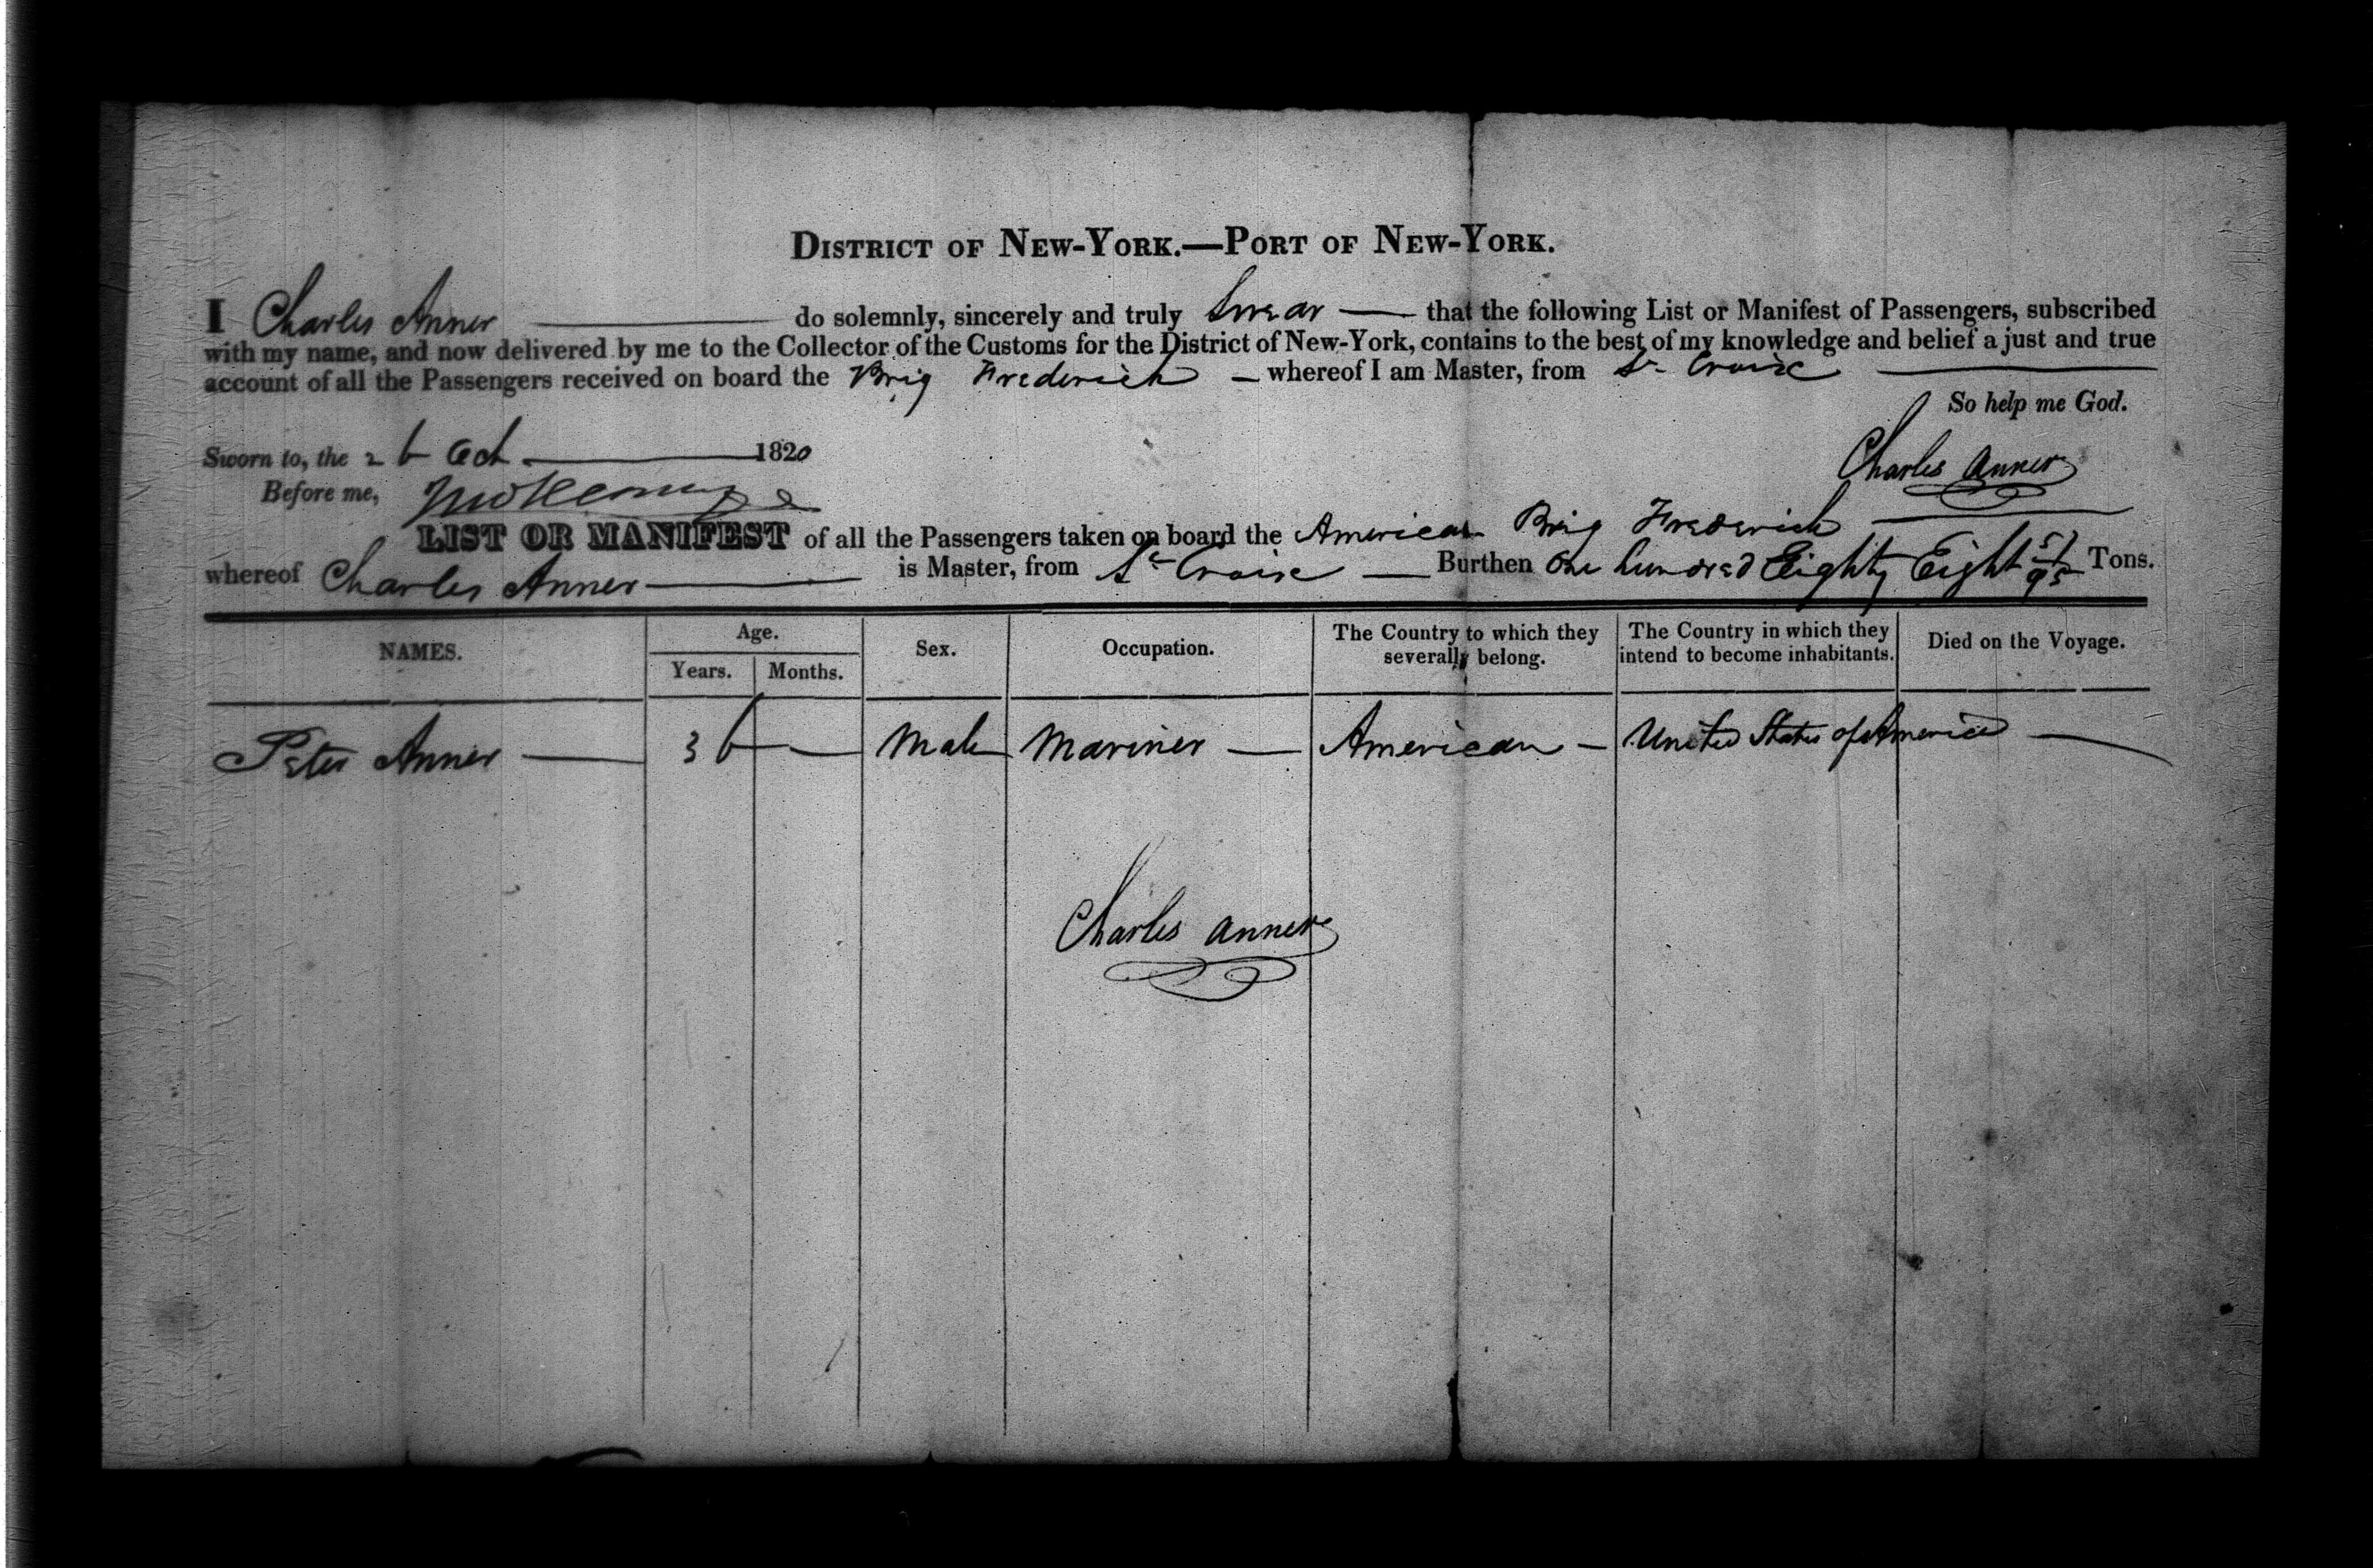 DISTRICT OF NEW-YORK.—PORT OF NEW-YORK.
I Charles Anner do solemnly, sincerely and truly Swear — that the following List or Manifest of Passengers, subscribed
with my name, and now delivered by me to the Collector of the Customs for the District of New-York, contains to the best of my knowledge and belief a just and true
account of all the Passengers received on board the Brig Frederick — whereof I am Master, from St Croix
So help me God.
Charles Anner
Sworn to, the 26 Oct 1820
Before me,
LIST OR MANIFEST of all the Passengers taken on board the American Brig Frederick
whereof Charles Anner is Master, from St Croix — Burthen One hundred Eighty Eight 51/95 Tons.
NAMES. Age. Years. Months. Sex. Occupation. The Country to which they severally belong. The Country in which they intend to become inhabitants. Died on the Voyage.
Peter Anner — 36 — Male Mariner — American — United States of America —
Charles Anner